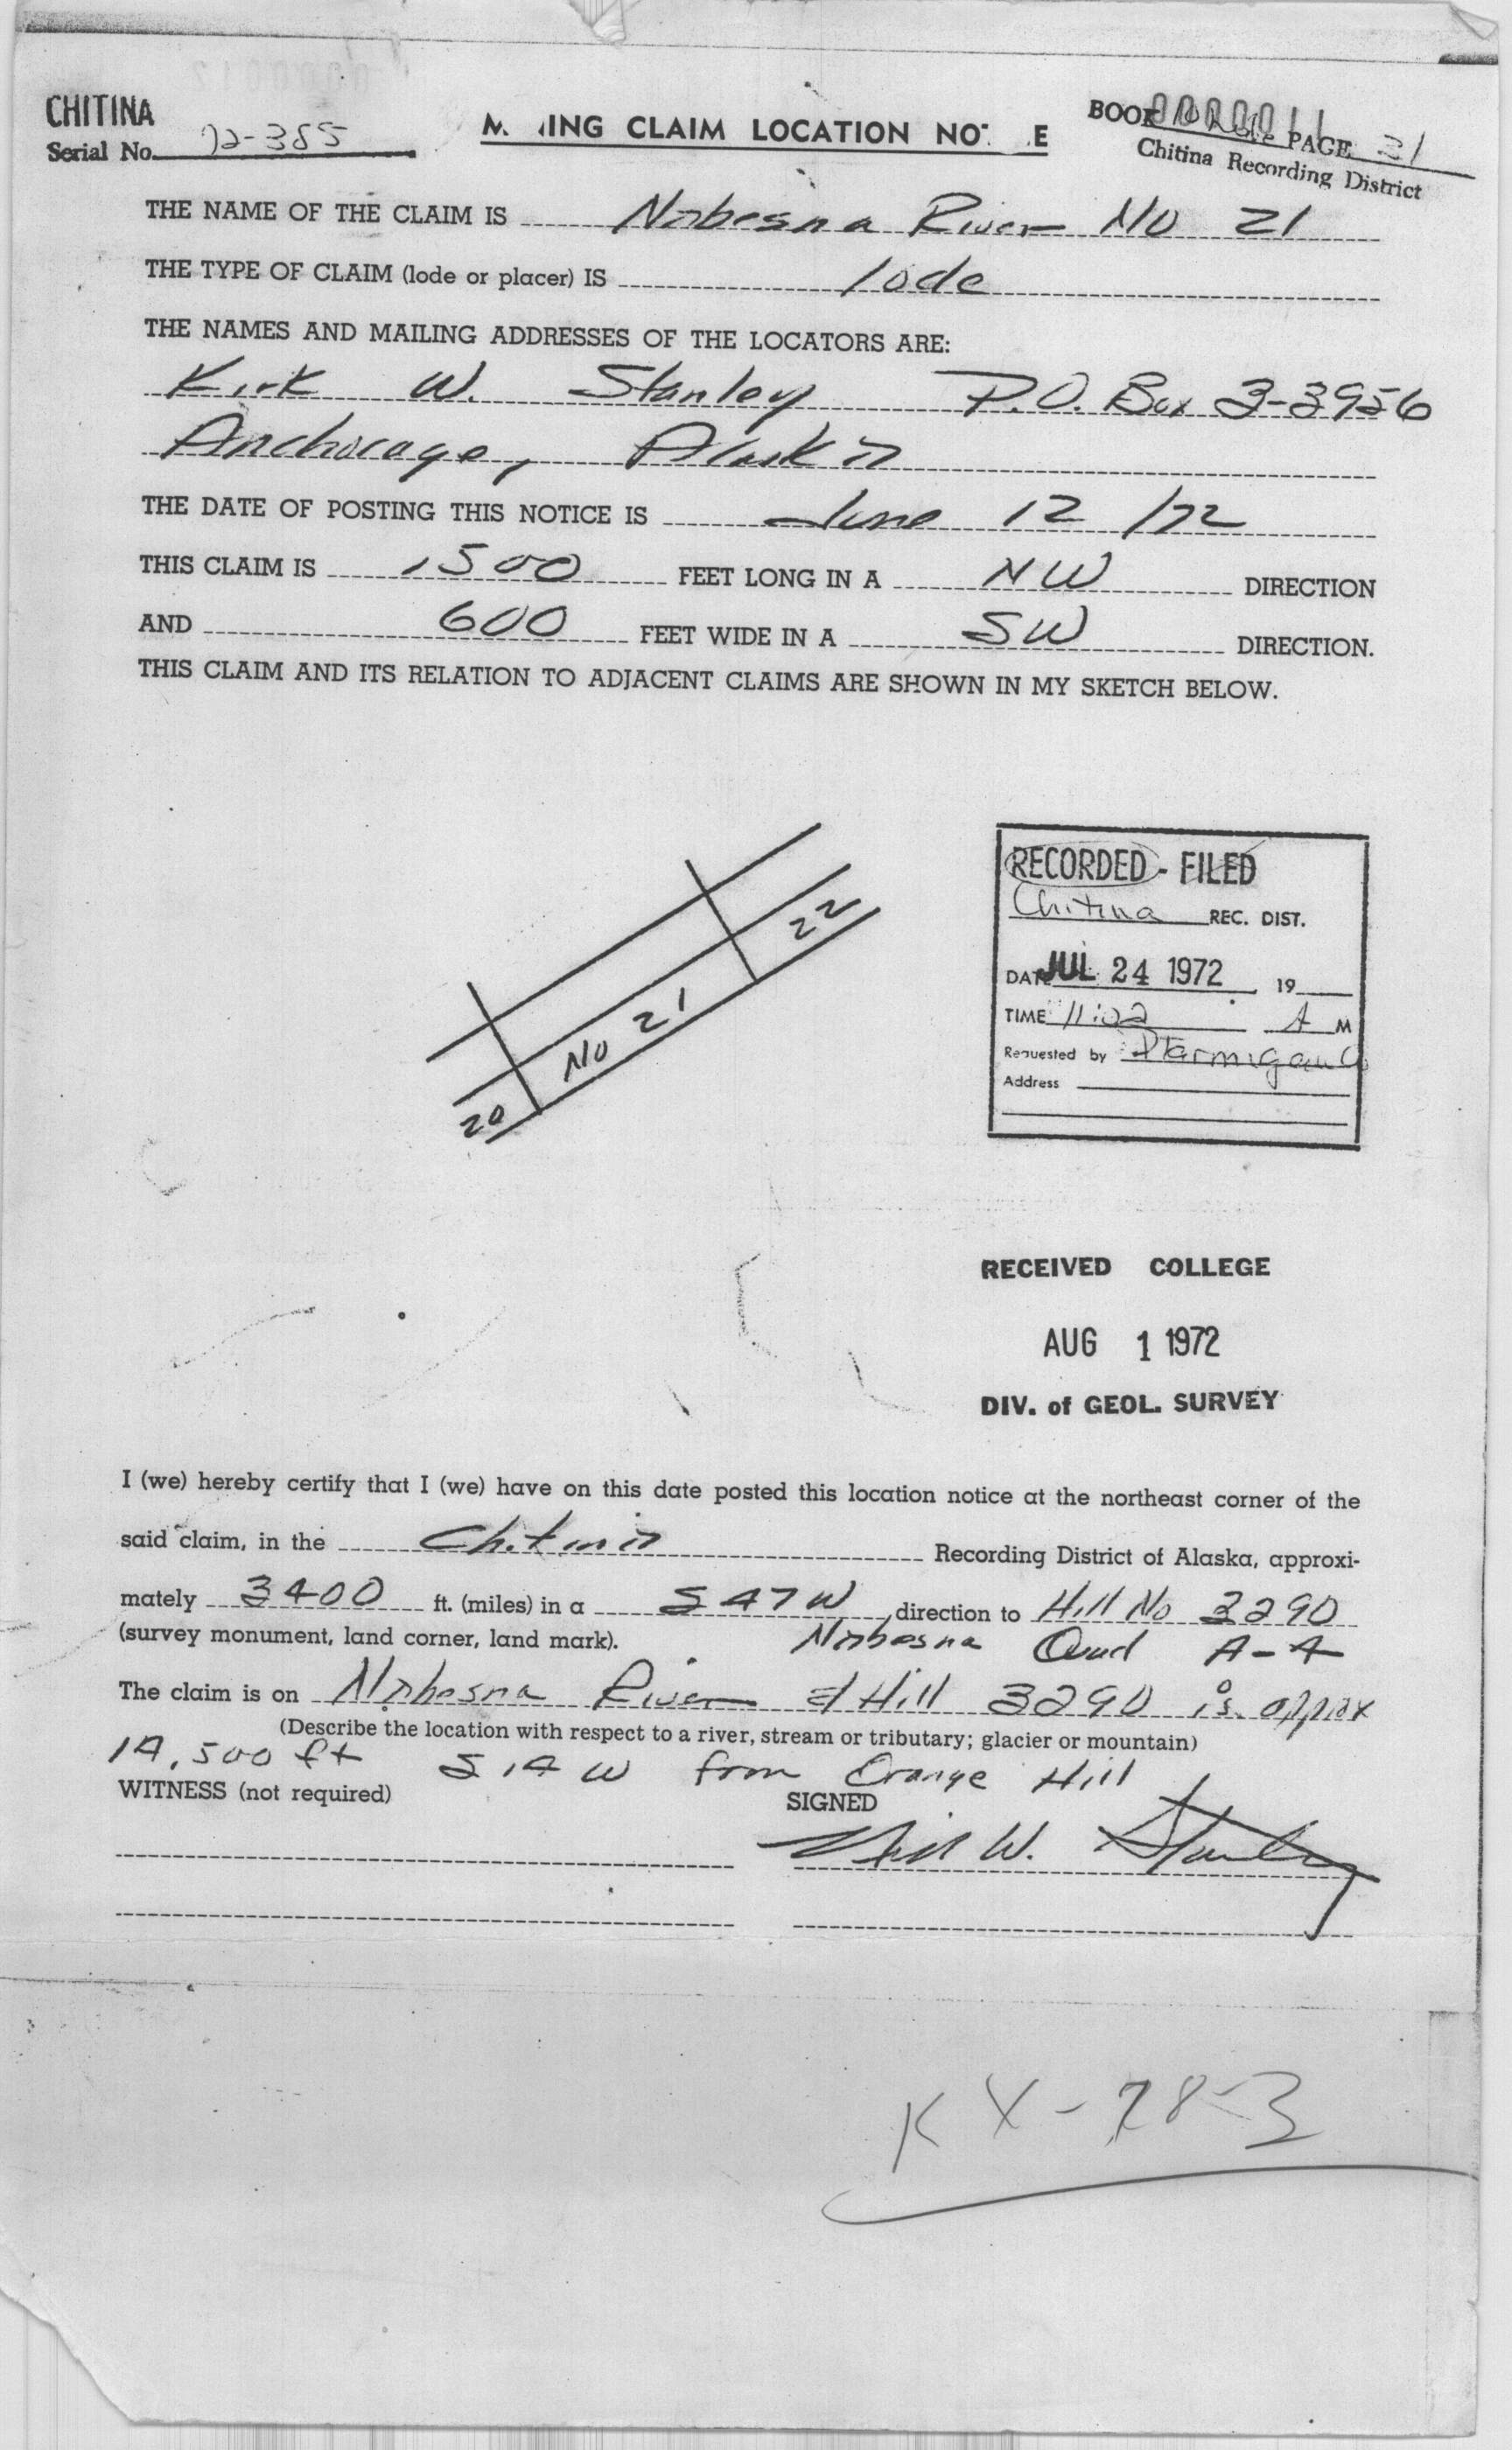 CHITINA
Serial No. 72-385
M  ING CLAIM LOCATION NOT  E
BOOK PAGE 21
Chitina Recording District
THE NAME OF THE CLAIM IS Nabesna River No 21
THE TYPE OF CLAIM (lode or placer) IS lode
THE NAMES AND MAILING ADDRESSES OF THE LOCATORS ARE:
Kirk W. Stanley P.O. Box 3-3956
Anchorage, Alaska
THE DATE OF POSTING THIS NOTICE IS June 12 /72
THIS CLAIM IS 1500 FEET LONG IN A NW DIRECTION
AND 600 FEET WIDE IN A SW DIRECTION.
THIS CLAIM AND ITS RELATION TO ADJACENT CLAIMS ARE SHOWN IN MY SKETCH BELOW.
22
No 21
20
RECORDED - FILED
Chitina REC. DIST.
DATE JUL 24 1972 19
TIME 11:02 A M
Requested by Ptarmigan Co
Address
RECEIVED COLLEGE
AUG 1 1972
DIV. of GEOL. SURVEY
I (we) hereby certify that I (we) have on this date posted this location notice at the northeast corner of the
said claim, in the Chitina Recording District of Alaska, approxi-
mately 3400 ft. (miles) in a S 47 W direction to Hill No 3290
(survey monument, land corner, land mark). Nabesna Quad A-4
The claim is on Nabesna River & Hill 3290 is approx
(Describe the location with respect to a river, stream or tributary; glacier or mountain)
14,500 ft S 14 W from Orange Hill
WITNESS (not required)
SIGNED
Kirk W. Stanley
KX-78-3